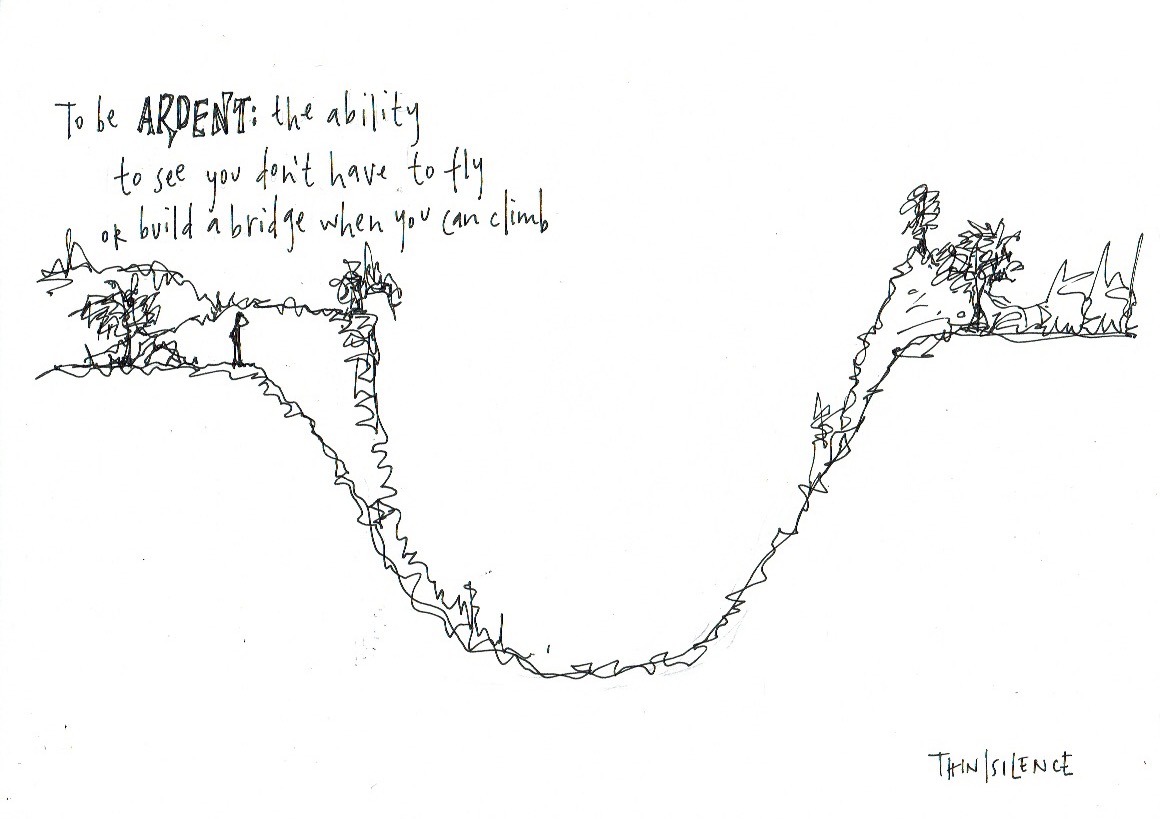 To be ARDENT: the ability
to see you don't have to fly
or build a bridge when you can climb
THIN/SILENCE